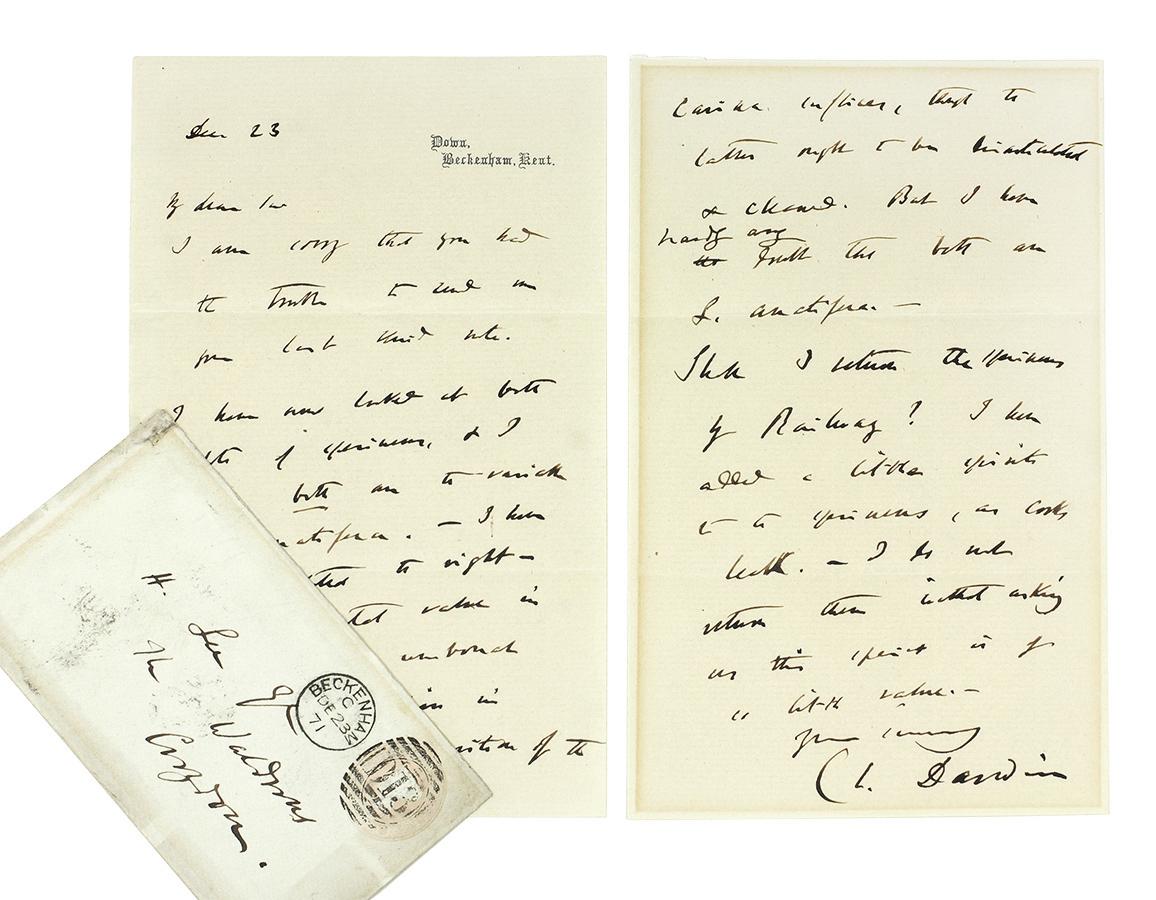 Dec 23
Down,
Beckenham, Kent.
My dear Sir
I am sorry that you had
the trouble to send me
your last kind note.
I have now looked at both
of specimens, & I
both are the variety
anatifera. — I have
the right-
value in
umbonal
in
position of the
Carina in/liner, though the
latter ought to be disarticulated
& cleaned. But I have
hardly any
doubt that both are
L. anatifera. —
Shall I return the specimens
by Railway? I have
added a little spirits
to the specimens, as corks
leak. — I do not
return them without asking
as this spirit is of
so little value. —
yours sincerely
Ch. Darwin
H. Lee Esq
The Waldrons
Croydon.
BECKENHAM
C
DE 23
71
D13